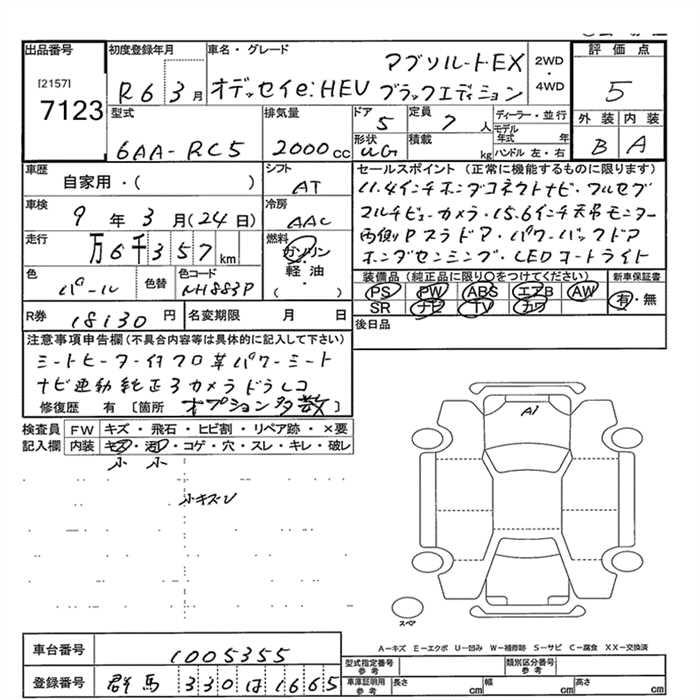 出品番号 初度登録年月 車名・グレード 評価点
[2157]
7123
R6 3月 オデッセイe:HEV アブソルートEX ブラックエディション 2WD・4WD 5
型式 排気量 ドア 5 定員 7 人 ディーラー・並行 外装 内装
6AA-RC5 2000cc 形状 UG 積載 kg モデル年式 年 ハンドル 左・右 B A
車歴 シフト セールスポイント (正常に機能するものに限ります)
自家用・( ) AT 11.4インチホンダコネクトナビ・フルセグ
車検 9年3月(24日) 冷房 AAC マルチビューカメラ・15.6インチ天吊モニター
走行 万6千357km 燃料 ガソリン・軽油・( ) 両側Pスラドア・パワーバックドア
ホンダセンシング・LEDコートライト
色 パール 色替 色コード NH883P 装備品 (純正品に限り○をつけてください) 新車保証書
PS PW ABS エアB AW 有・無
SR ナビ TV カワ
R券 18130円 名変期限 月 日 後日品
注意事項申告欄 (不具合内容等は具体的に記入して下さい)
シートヒーター付フロ革パワーシート
ナビ連動純正3カメラドラレコ
修復歴 有 [箇所 オプション多数]
検査員記入欄 FW キズ・飛石・ヒビ割・リペア跡・×要
内装 キズ・汚レ・コゲ・穴・スレ・キレ・破レ
小 小
小キズU
A1
スペア
A-キズ E-エクボ U-凹み W-補修跡 S-サビ C-腐食 XX-交換済
車台番号 1005355 型式指定番号 参考 類別区分番号 参考
登録番号 群馬 330 は 1665 車庫証明用 参考 長さ cm 幅 cm 高さ cm